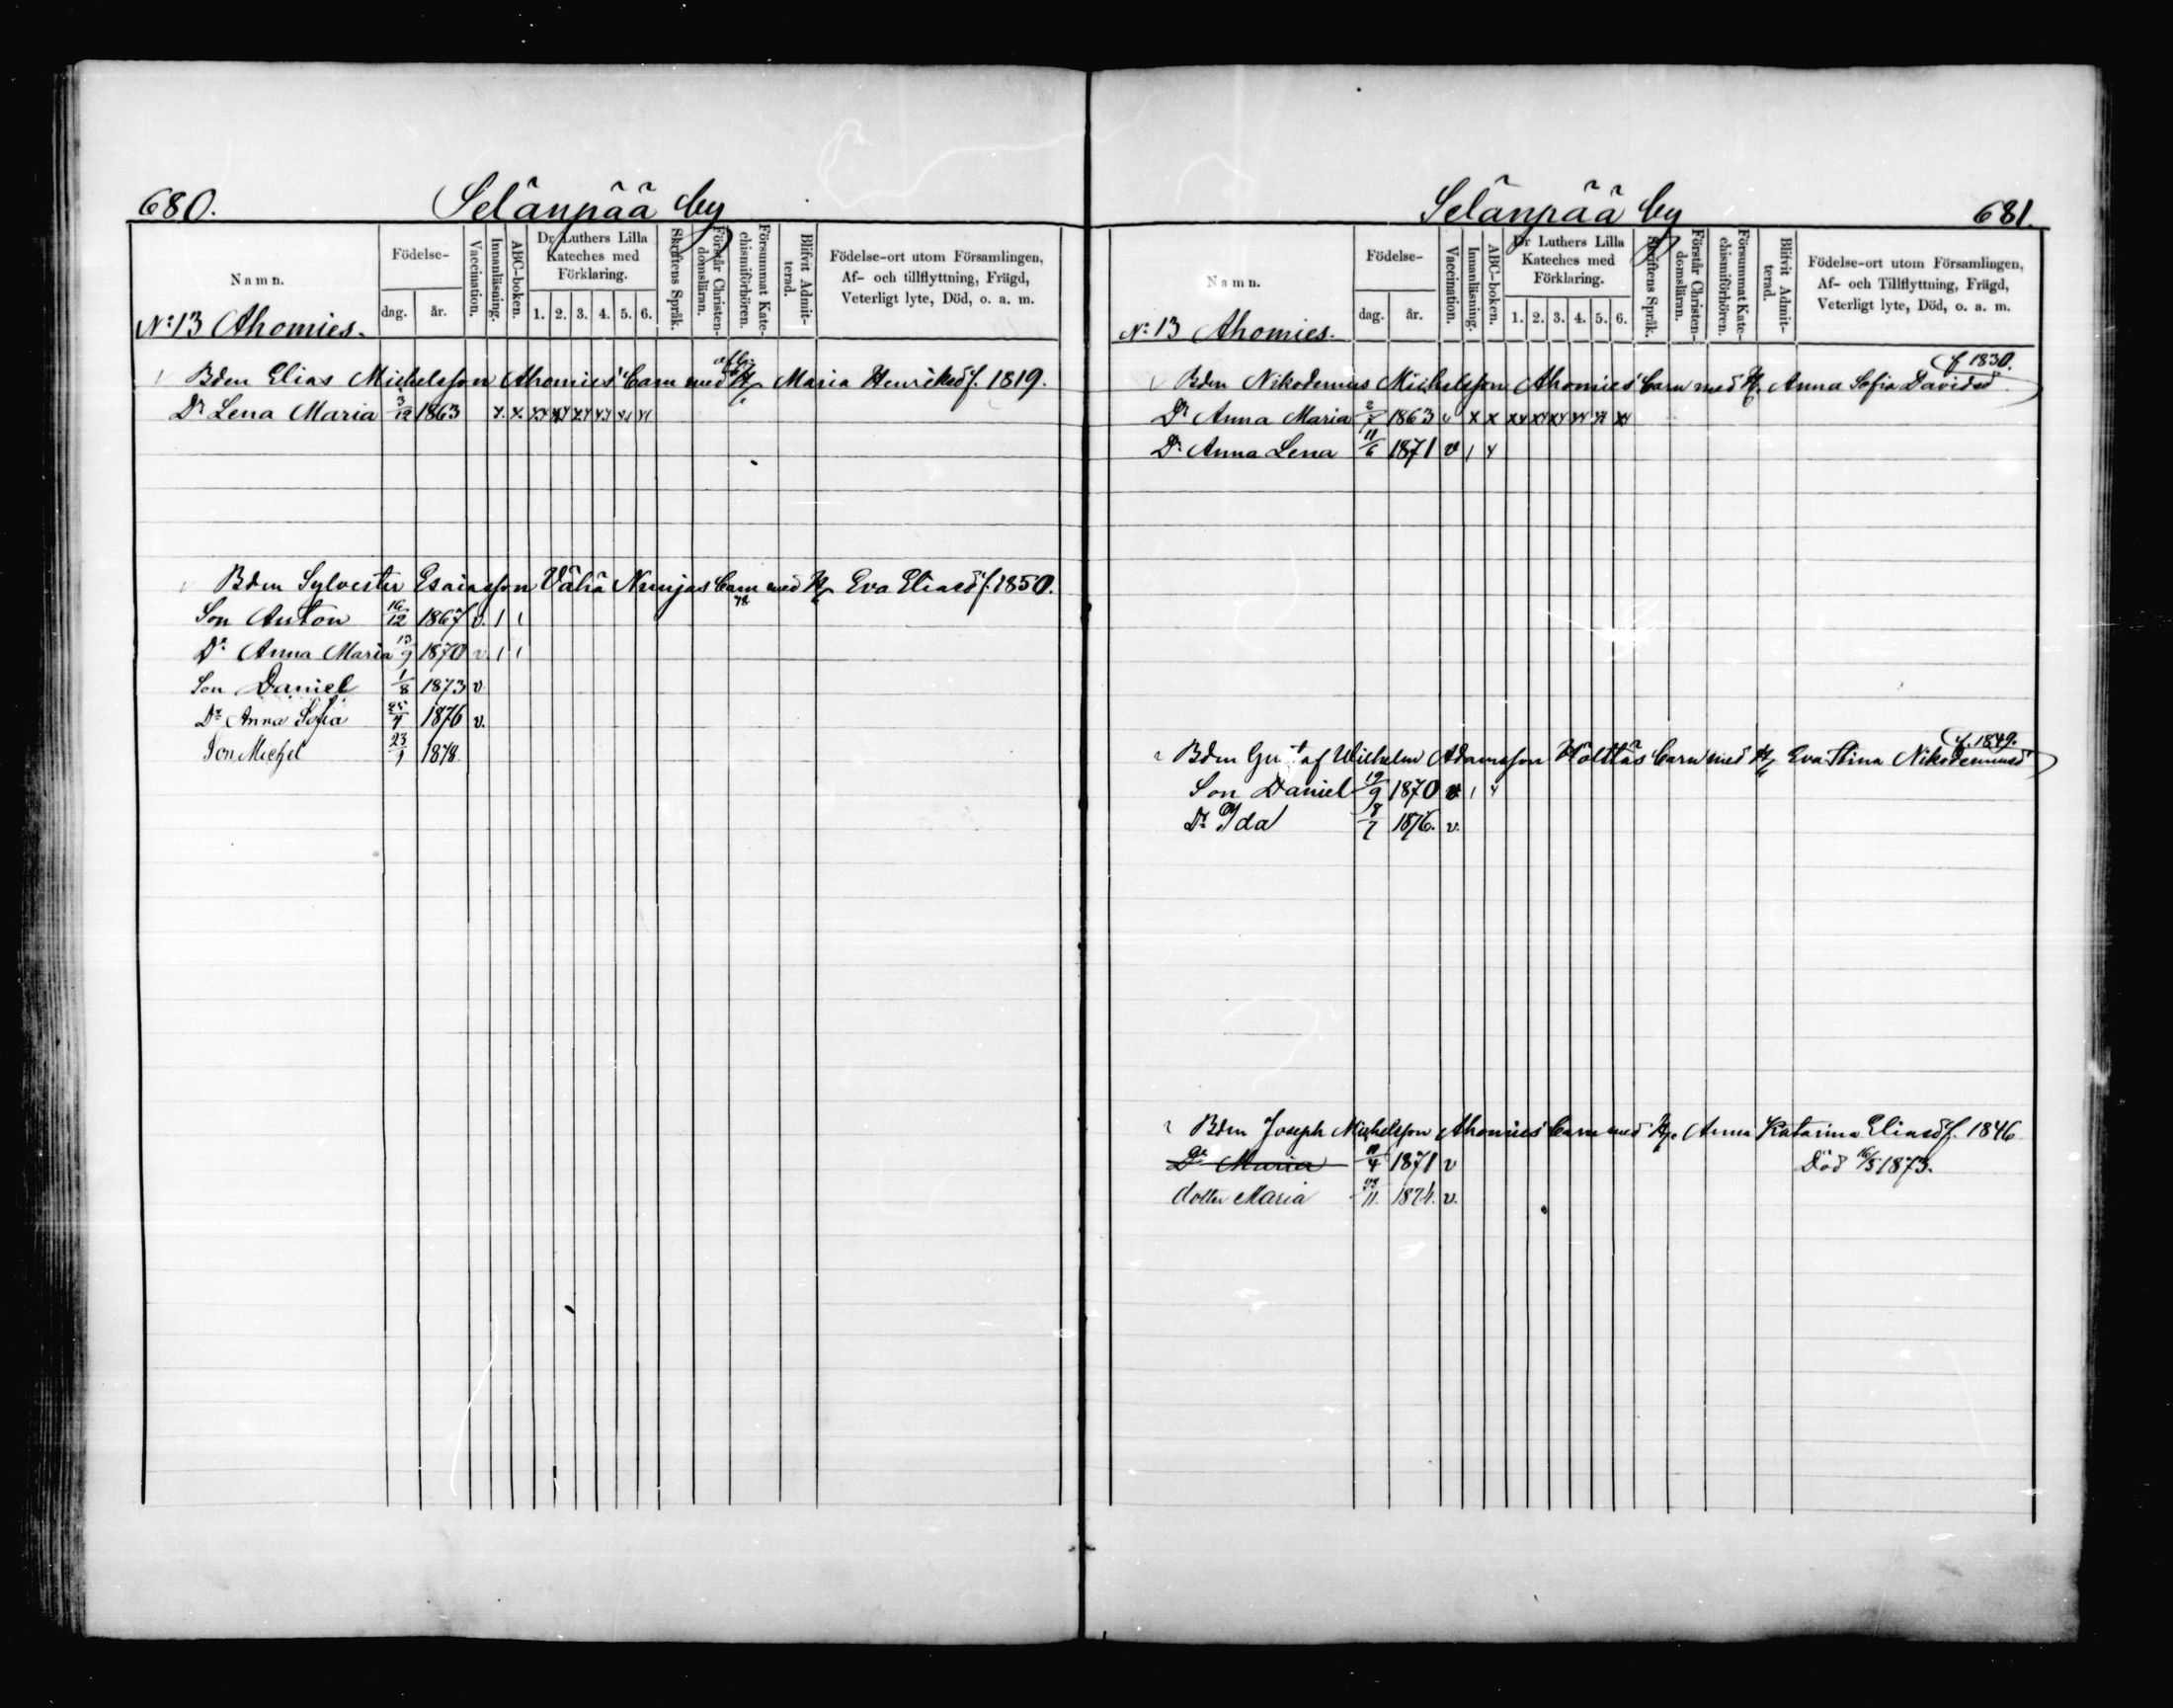 680. Selänpää by
Namn. Födelse- dag. år. Vaccination. Innanläsning. ABC-boken. Dr Luthers Lilla Kateches med Förklaring. 1. 2. 3. 4. 5. 6. Skriftens Språk. Förstår Christendomsläran. Försummat Katechismiförhören. Blifvit Admitterad. Födelse-ort utom Församlingen, Af- och tillflyttning, Frägd, Veterligt lyte, Död, o. a. m.
No 13 Ahomies.
Bden Elias Michelsson Ahomies' barn med afl. H. Maria Henriksd f. 1819.
Dr Lena Maria 3/12 1863
Bden Sylvester Esaiasson Vähä Nunjas barn med H. Eva Eliasd f. 1850.
Son Anton 16/12 1867 v. 1 1
Dr Anna Maria 13/9 1870 v. 1 1
Son Daniel 1/8 1873 v.
Dr Anna Sofia 25/4 1876 v.
Son Michel 23/1 1878
Selänpää by 681.
Namn. Födelse- dag. år. Vaccination. Innanläsning. ABC-boken. Dr Luthers Lilla Kateches med Förklaring. 1. 2. 3. 4. 5. 6. Skriftens Språk. Förstår Christendomsläran. Försummat Katechismiförhören. Blifvit Admitterad. Födelse-ort utom Församlingen, Af- och Tillflyttning, Frägd, Veterligt lyte, Död, o. a. m.
No 13 Ahomies.
Bden Nikodemus Michelsson Ahomies' barn med H. Anna Sofia Davidsd f. 1830.
Dr Anna Maria 1863
Dr Anna Lena 11/6 1871 v 1
Bden Gustaf Wilhelm Adamsson Hölttäs barn med H. Eva Stina Nikodemusd f. 1849.
Son Daniel 19/9 1870 v. 1
Dr Ida 8/7 1876. v.
Bden Joseph Michelsson Ahomies' barn med H. Anna Katarina Eliasd f. 1846
Dr Maria 1871 v Död 16/5 1873.
dotter Maria 23/11. 1874. v.